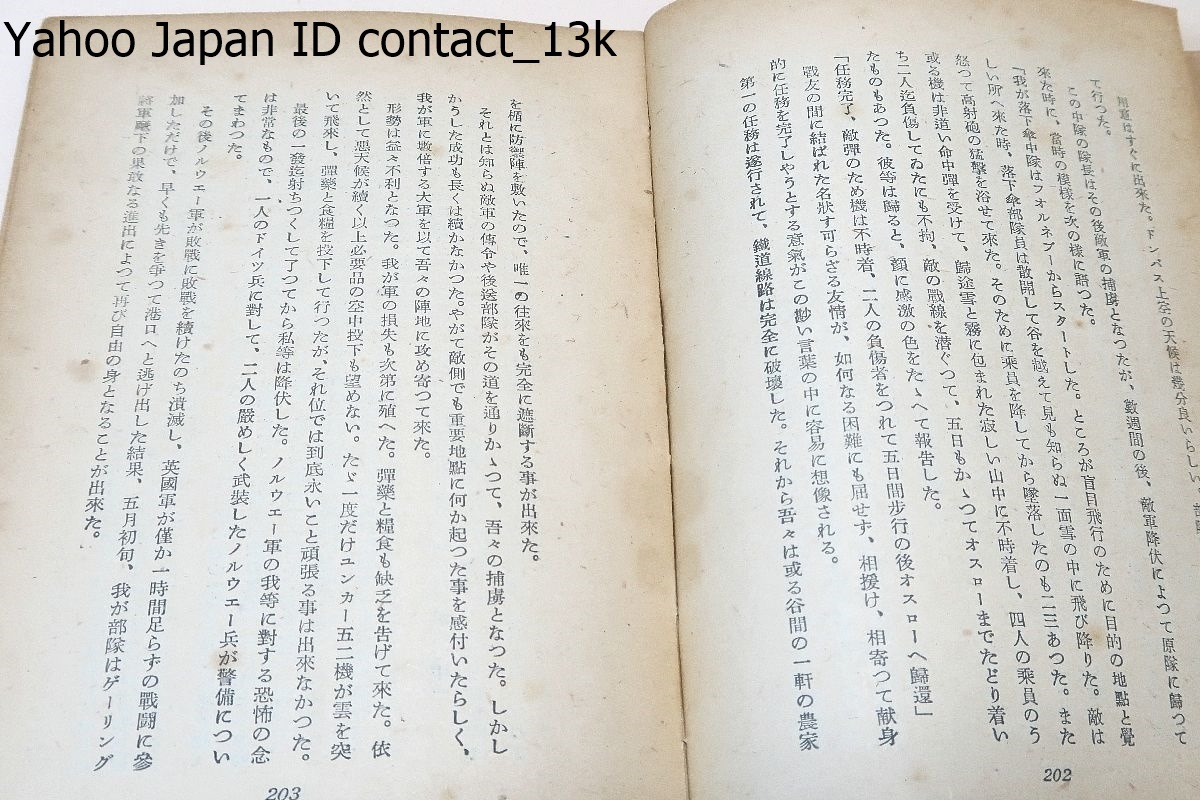 Yahoo Japan ID contact_13k
用意はすぐに出來た。ドンバス上空の天候は幾分良いらしい。
て行つた。
この中隊の隊長はその後敵軍の捕虜となつたが、數週間の後、敵軍降伏によつて原隊に歸つて
來た時に、當時の模樣を次の樣に語つた。
「我が落下傘中隊はフォルネブーからスタートした。ところが盲目飛行のために目的の地點と覺
しい所へ來た時、落下傘部隊員は散開して谷を越えて見も知らぬ一面雪の中に飛び降りた。敵は
怒つて高射砲の猛擊を浴せて來た。そのために乘員を降してから墜落したのも二三あつた。また
或る機は非道い命中彈を受けて、歸途雪と霧に包まれた寂しい山中に不時着し、四人の乘員のう
ち二人迄負傷してゐたにも不拘、敵の戰線を潛ぐつて、五日もかゝつてオスローまでたどり着い
たものもあつた。彼等は歸ると、顏に感激の色をたゝへて報告した。
「任務完了、敵彈のため機は不時着、二人の負傷者をつれて五日間步行の後オスローへ歸還」
戰友の間に結ばれた名狀す可らざる友情が、如何なる困難にも屈せず、相援け、相寄つて献身
的に任務を完了しやうとする意氣がこの尠い言葉の中に容易に想像される。
第一の任務は遂行されて、鐵道線路は完全に破壞した。それから吾々は或る谷間の一軒の農家
202
を楯に防禦陣を敷いたので、唯一の往來をも完全に遮斷する事が出來た。
それとは知らぬ敵軍の傳令や後送部隊がその道を通りかゝつて、吾々の捕虜となつた。しかし
かうした成功も長くは續かなかつた。やがて敵側でも重要地點に何か起つた事を感付いたらしく、
我が軍に數倍する大軍を以て吾々の陣地に攻め寄つて來た。
形勢は益々不利となつた。我が軍の損失も次第に殖へた。彈藥と糧食も缺乏を告げて來た。依
然として惡天候が續く以上必要品の空中投下も望めない。たゞ一度だけユンカー五二機が雲を突
いて飛來し、彈藥と食糧を投下して行つたが、それ位では到底永いこと頑張る事は出來なかつた。
最後の一發迄射ちつくして了つてから私等は降伏した。ノルウエー軍の我等に對する恐怖の念
は非常なもので、一人のドイツ兵に對して、二人の嚴めしく武裝したノルウエー兵が警備につい
てまわつた。
その後ノルウエー軍が敗戰に敗戰を續けたのち潰滅し、英國軍が僅か一時間足らずの戰鬪に參
加しただけで、早くも先きを爭つて港口へと逃げ出した結果、五月初旬、我が部隊はゲーリング
將軍麾下の果敢なる進出によつて再び自由の身となることが出來た。
203